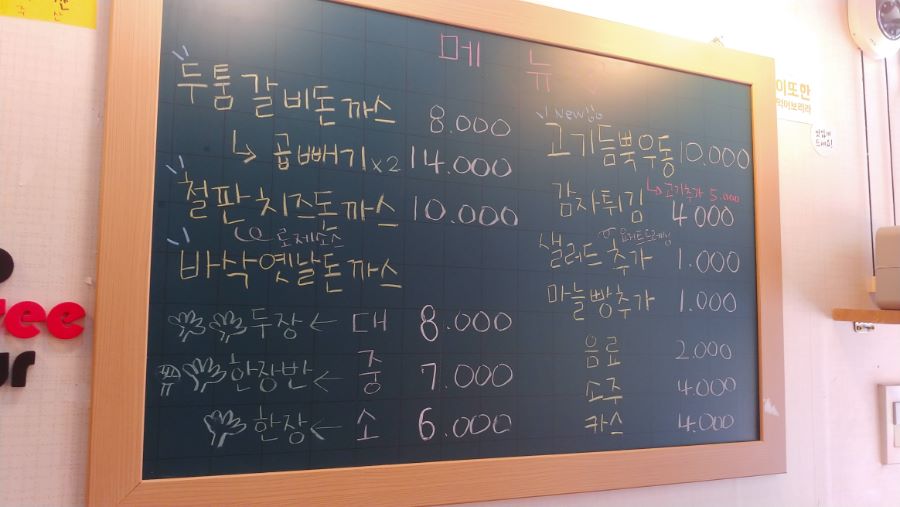 메뉴
두툼갈비돈까스 8.000
↳ 곱빼기 x2 14.000
철판치즈돈까스 10.000
로제소스
바삭옛날돈까스
두장 ← 대 8.000
한장반 ← 중 7.000
한장 ← 소 6.000
New
고기듬뿍우동 10.000
↳ 고기추가 5.000
감자튀김 4.000
샐러드추가 1.000
마늘빵추가 1.000
음료 2.000
소주 4.000
카스 4.000
이또한
먹어브리라
맛있게
드세요!
ree
ur